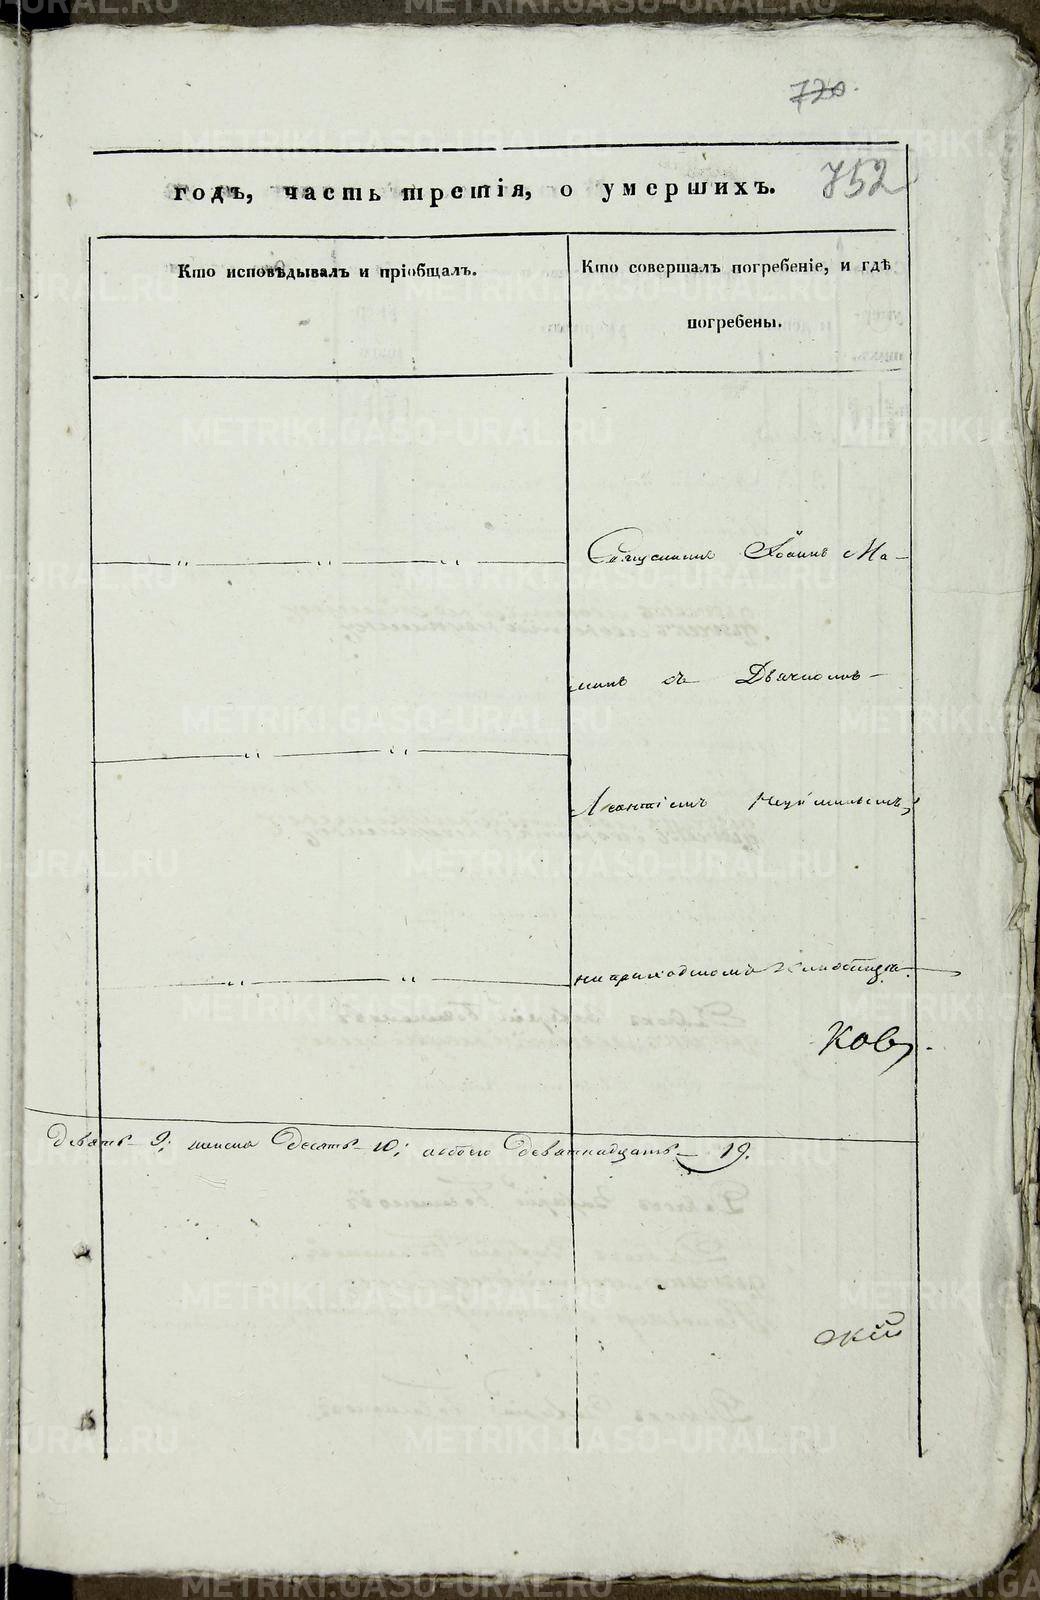 720.
752
годъ, часть третія, о умершихъ.
Кто исповѣдывалъ и пріобщалъ.
Кто совершалъ погребеніе, и гдѣ
погребены.
Священникъ Іоаннъ Ма-
минъ съ Дьячкомъ
Леонтіемъ
на приходскомъ кладбищѣ.
Ков
Девять 9; женска десять 10; обоего девятнадцать 19.
скій
METRIKI.GASO-URAL.RU